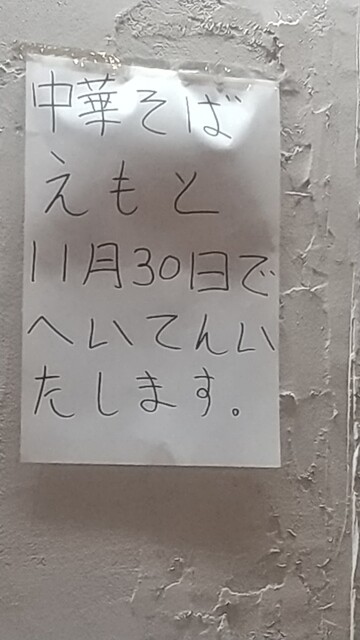 中華そば
えもと
11月30日で
へいてんい
たします。